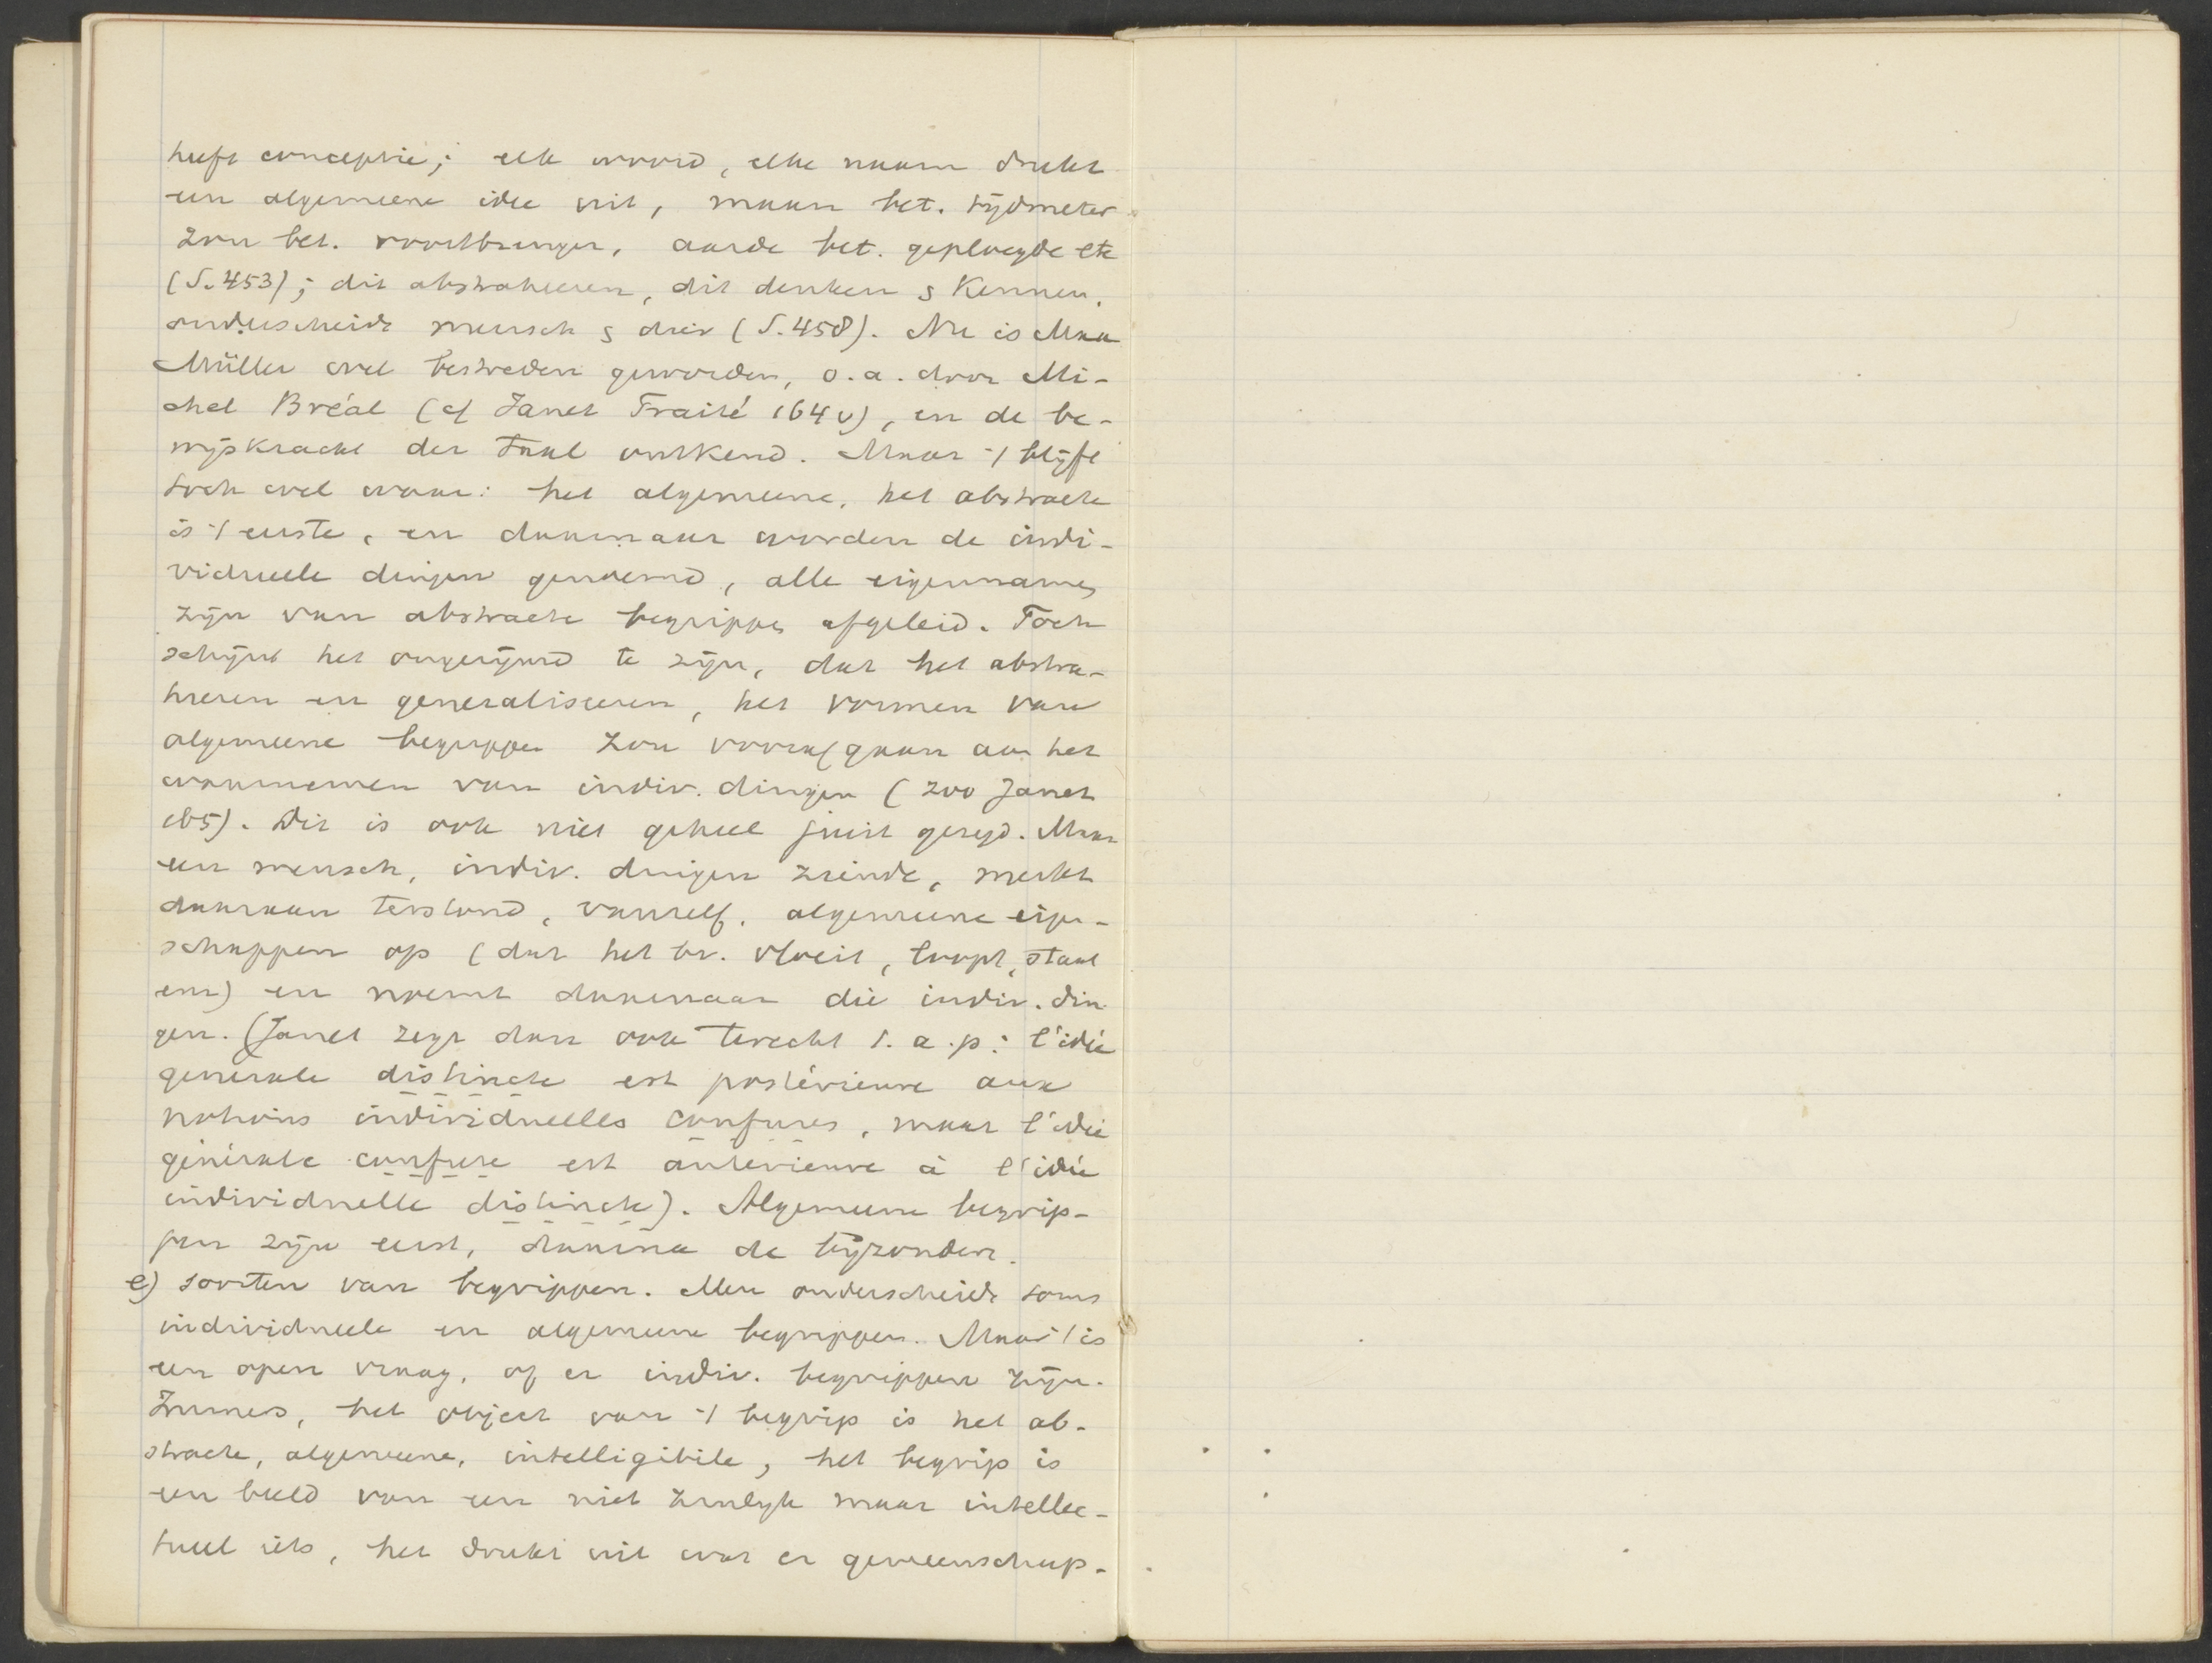 heeft conceptie; elk woord, elke naam drukt
een algemeene idee uit, maan bet. tijdmeter
zon bet. voortbrenger, aarde bet. geploegde etc
(S. 453); dit abstraheeren, dit denken s kennen,
onderscheidt mensch s dier (S. 458). Nu is Max
Müller wel bestreden geworden, o.a. door Mi-
chel Bréal (cf Janet Traité 164 v), en de be-
wijskracht der taal ontkend. Maar 't blijft
toch wel waar: het algemeene, het abstracte
is 't eerste, en daarnaar worden de indi-
vidueele dingen genoemd, alle eigennamen
zijn van abstracte begrippen afgeleid. Toch
schijnt het ongerijmd te zijn, dat het abstra-
heeren en generaliseeren, het vormen van
algemeene begrippen zou voorafgaan aan het
waarnemen van indiv. dingen (zoo Janet
165). Dit is ook niet geheel juist gezegd. Maar
een mensch, indiv. dingen ziende, merkt
daaraan terstond, vanzelf, algemeene eigen-
schappen op (dat het bv. vloeit, loopt, staat
enz) en noemt daarnaar die indiv. din
gen. (Janet zegt dan ook terecht t.a.p: l'idée
générale distincte est postérieure aux
notions individuelles confuses, maar l'idée
générale confuse est antérieure à l'idée
individuelle distincte). Algemeene begrip-
pen zijn eerst, daarna de bijzondere.
e) soorten van begrippen. Men onderscheidt soms
individueele en algemeene begrippen. Maar 't is
een open vraag, of er indiv. begrippen zijn.
Immers, het object van 't begrip is het ab-
stracte, algemeene, intelligibile, het begrip is
een beeld van een niet zinlijk maar intellec-
tueel iets, het drukt uit wat er gemeenschap-